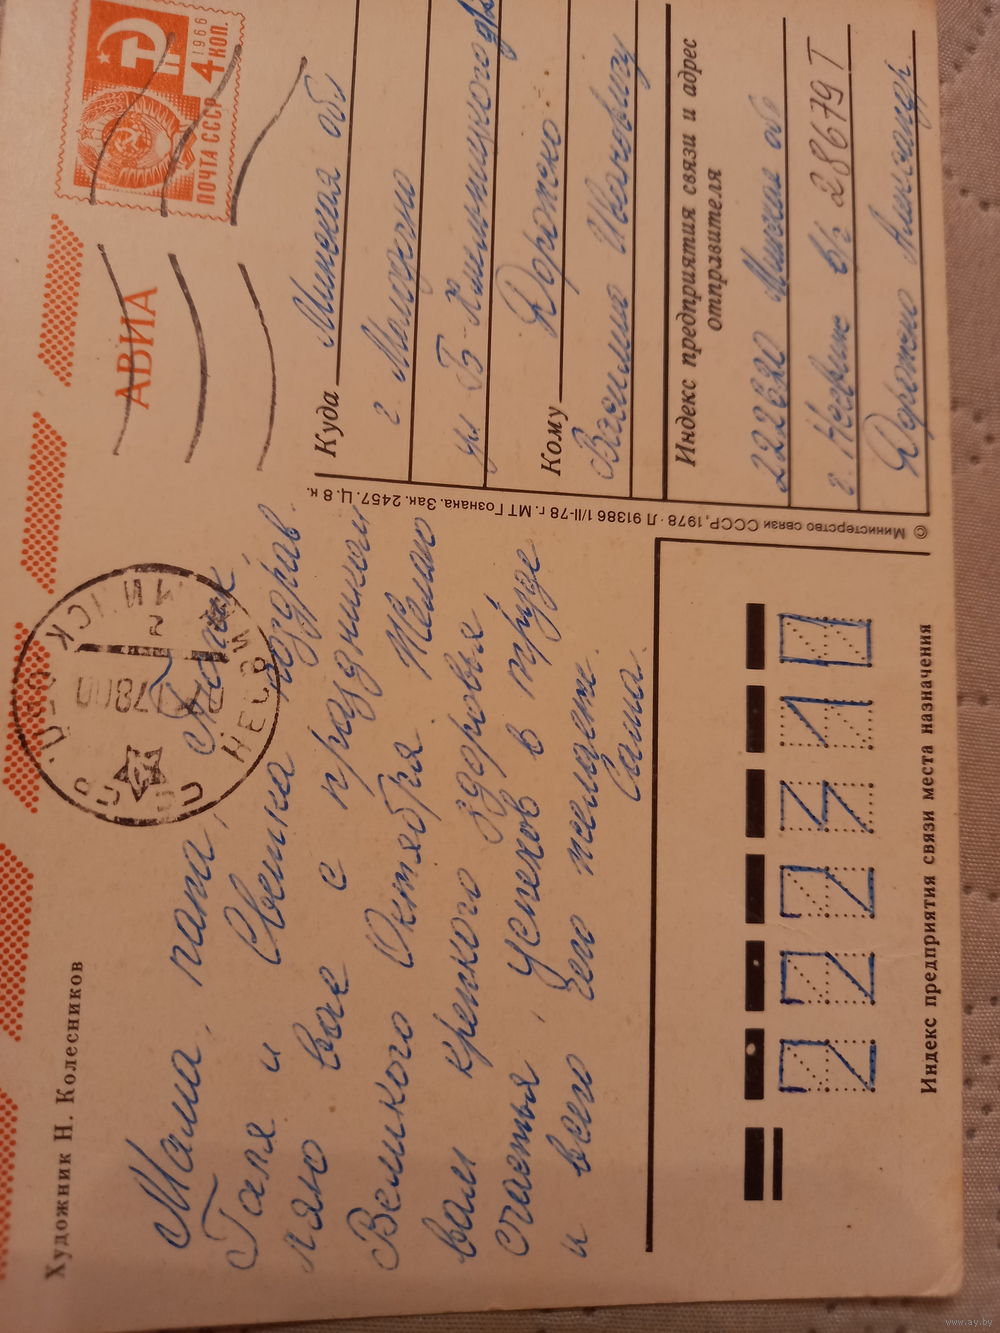 Художник Н. Колесников
АВИА
1966
4 КОП.
ПОЧТА СССР
СССР
НЕСВИЖ
МИНСК
Мама, папа, Толик,
Галя и Светка поздрав
ляю вас с праздником
Великого Октября Желаю
вам крепкого здоровья
счастья, успехов в труде
и всего чего желаете.
Саша.
Куда Минская обл
г. Молодечно
ул Б-Хмельницкого
Кому Дорожко
Василию Ивановичу
Индекс предприятия связи и адрес
отправителя
222620 Минская обл
г. Несвиж в/ч 28679 Т
Дорожко Александр.
© Министерство связи СССР, 1978. Л 91386 1/II-78 г. МТ Гознака. Зак. 2457. Ц. 8 к.
222310
Индекс предприятия связи места назначения
www.ay.by